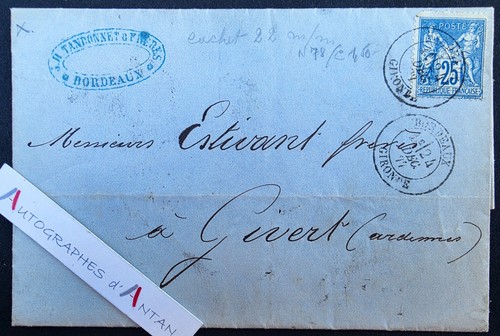 x
J. H. TANDONNET & FRÈRES
BORDEAUX
cachet 22 m/m
POSTE
25
RÉPUBLIQUE FRANÇAISE
GIRONDE
BORDEAUX
24
DEC
77
GIRONDE
Messieurs Estivant frères
à Givert (Ardennes)
AUTOGRAPHES d'ANTAN